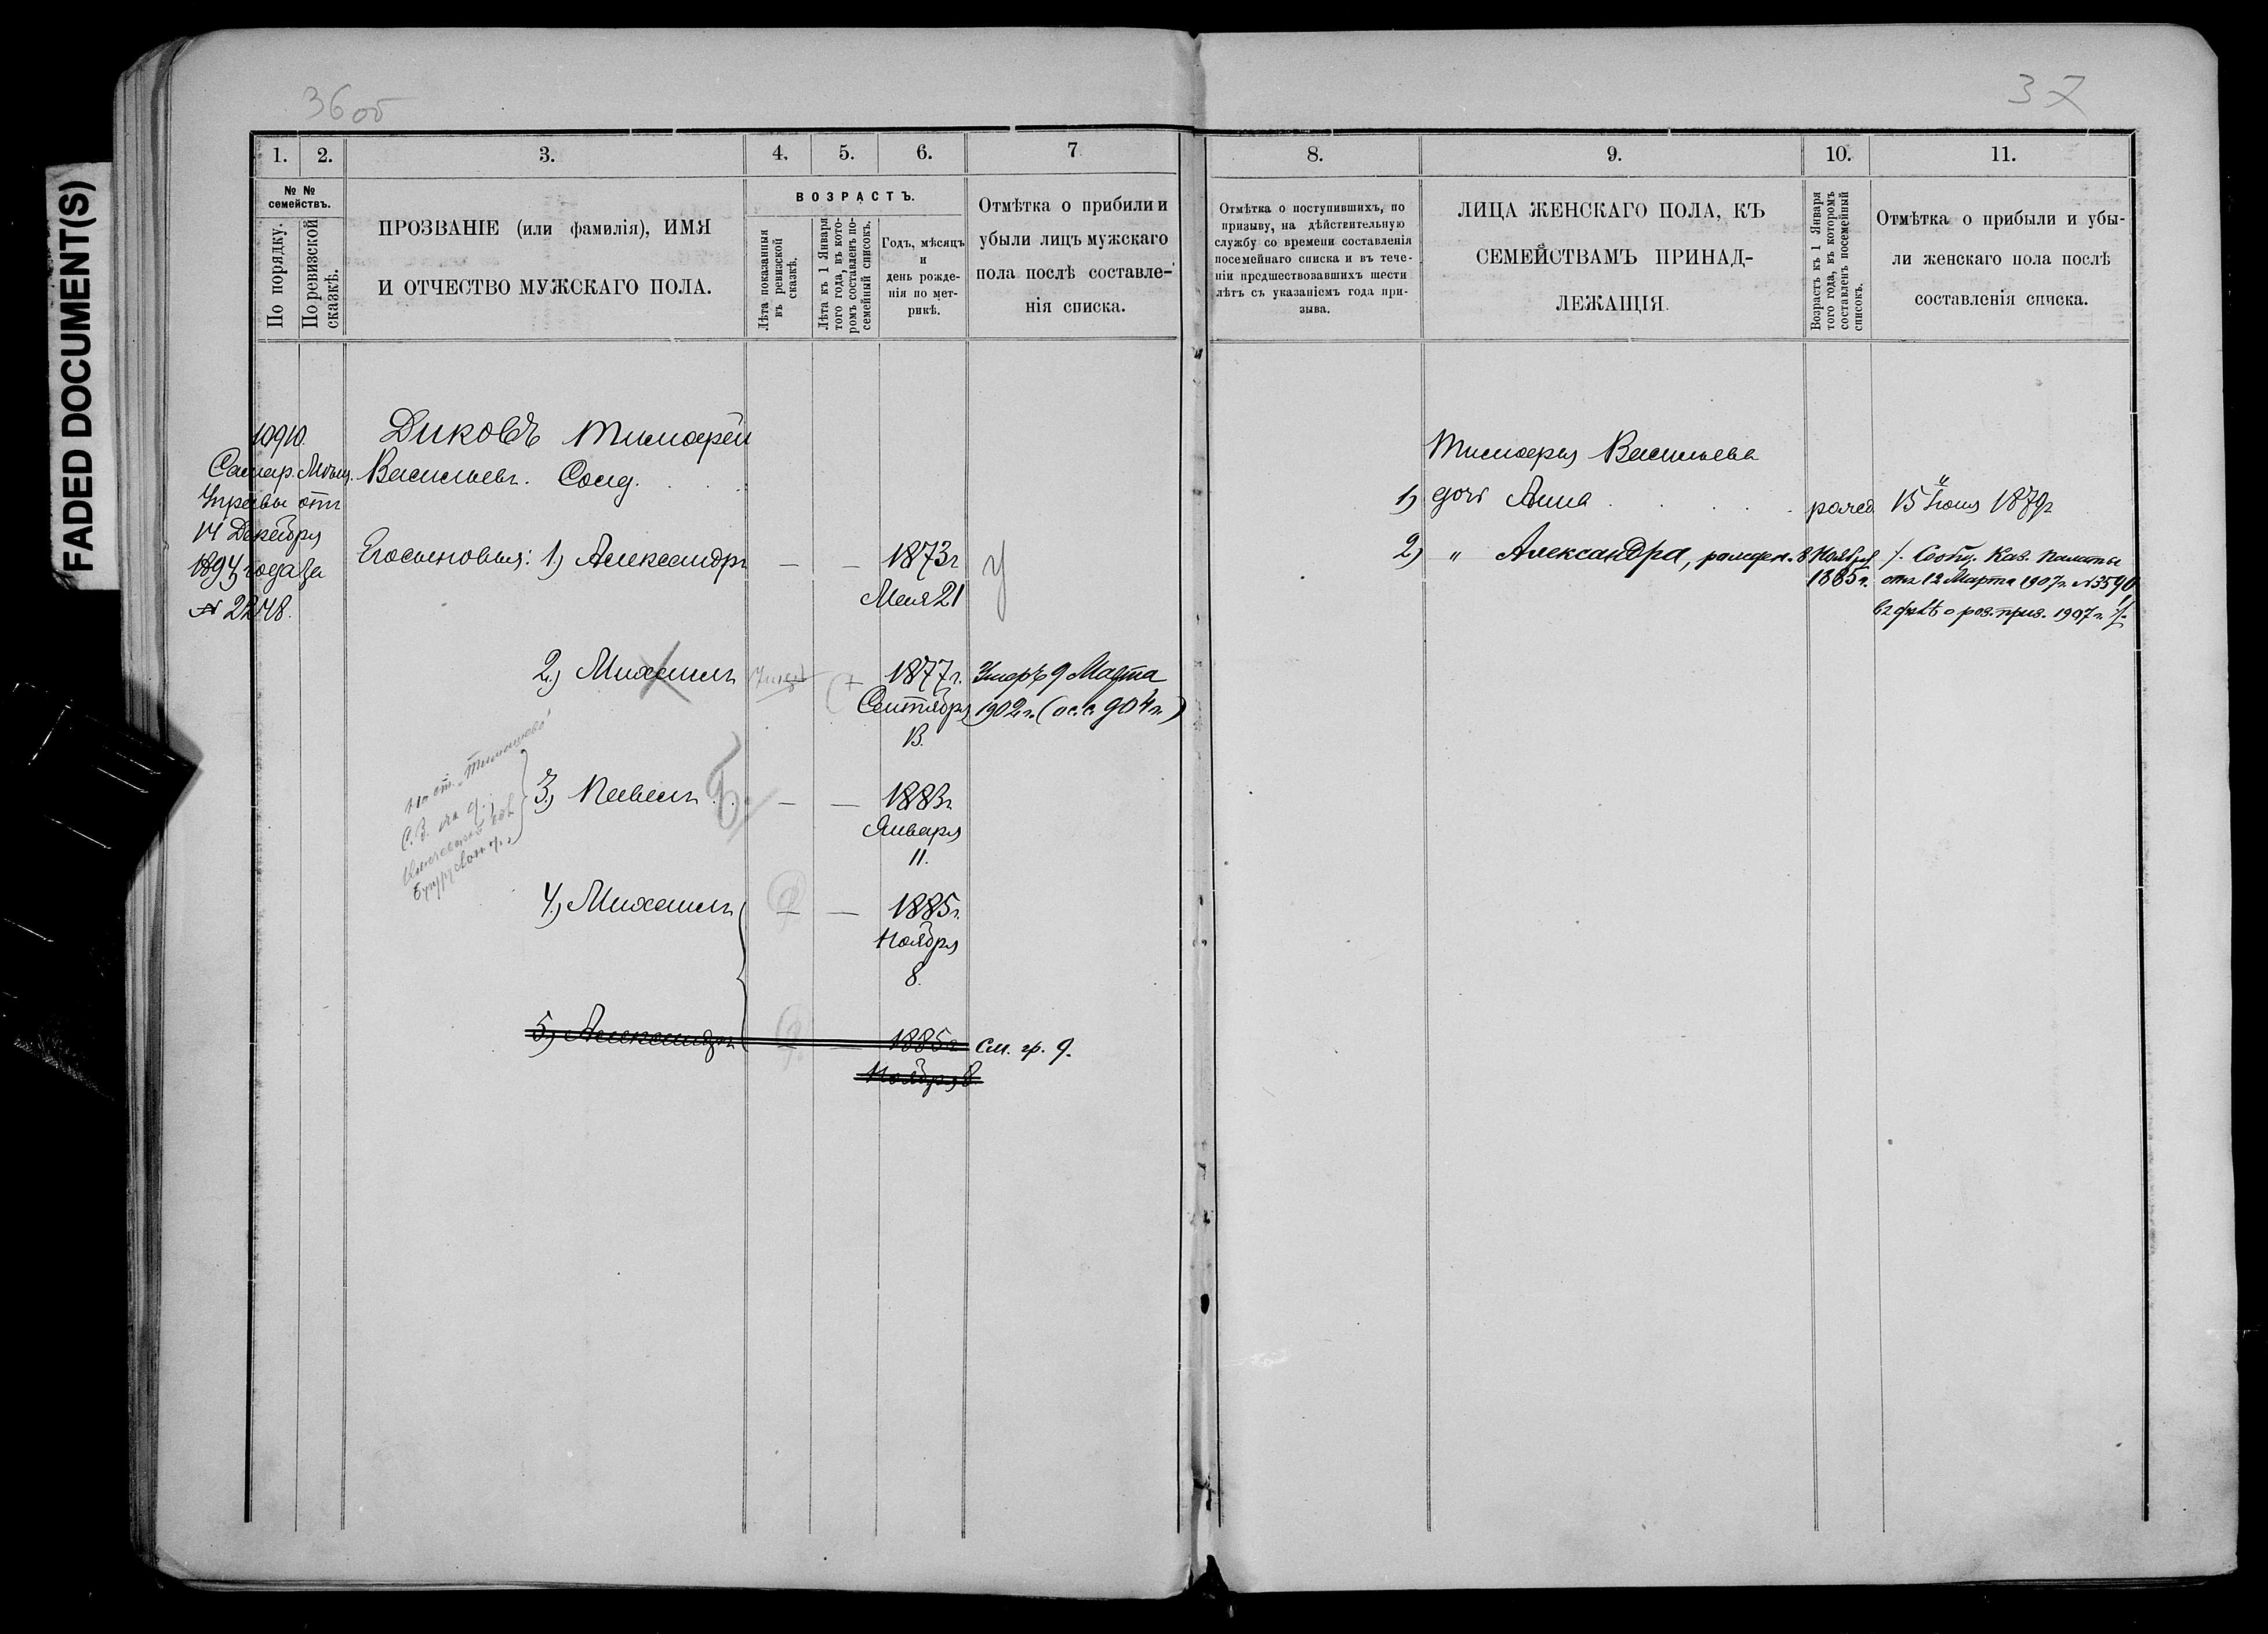 FADED DOCUMENT(S)
36об
37
1.
2.
3.
4.
5.
6.
7
8.
9.
10.
11.
№ №
семействъ.
По порядку.
По ревизской
сказкѣ.
ПРОЗВАНІЕ (или фамилія), ИМЯ
И ОТЧЕСТВО МУЖСКАГО ПОЛА.
ВОЗРАСТЪ.
Лѣта показанныя
въ ревизской
сказкѣ.
Лѣта къ 1 Января
того года, въ кото-
ромъ составленъ по-
семейный списокъ.
Годъ, мѣсяцъ
и
день рожде-
нія по мет-
рикѣ.
Отмѣтка о прибили и
убыли лицъ мужскаго
пола послѣ составле-
нія списка.
Отмѣтка о поступившихъ, по
призыву, на дѣйствительную
службу со времени составленія
посемейнаго списка и въ тече-
ніи предшествовавшихъ шести
лѣтъ съ указаніемъ года при-
зыва.
ЛИЦА ЖЕНСКАГО ПОЛА, КЪ
СЕМЕЙСТВАМЪ ПРИНАД-
ЛЕЖАЩІЯ.
Возрастъ къ 1 Января
того года, въ которомъ
составленъ посемейный
списокъ.
Отмѣтка о прибыли и убы-
ли женскаго пола послѣ
составленія списка.
10910.
Самар. Мѣщ.
Управы отъ
14 Декабря
1894 года за
№ 2248.
Диковъ Тимофей
Васильевъ. Солд.
Его сыновья: 1) Александръ — — 1873 г
Мая 21
У
2.) Михаилъ 1877 г. Умеръ 9 Марта
Сентября 1902 г. (ос. с. 904 г.)
13.
на ст.
С.В. ж.д.
Бугуруслан. у.
3.) Павелъ . . — — 1883 г
Января
11.
4.) Михаилъ — — 1885 г.
Ноября
8.
5) Александръ — — 1885 г См. гр. 9.
Ноября 8
Тимофея Васильева
1) дочь Анна . . . . рожд 15 Іюня 1879 г
2) " Александра, рожден. 8 Ноября
1885 г.
/. Сообщ. Каз. Палаты
отъ 12 Марта 1907 г. № 3590
въ дѣлѣ о роз. приз. 1907 г. /.